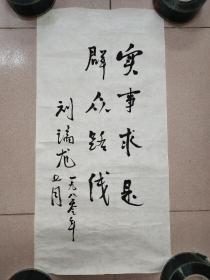 实事求是
群众路线
刘瑞龙
一九八 年
五月